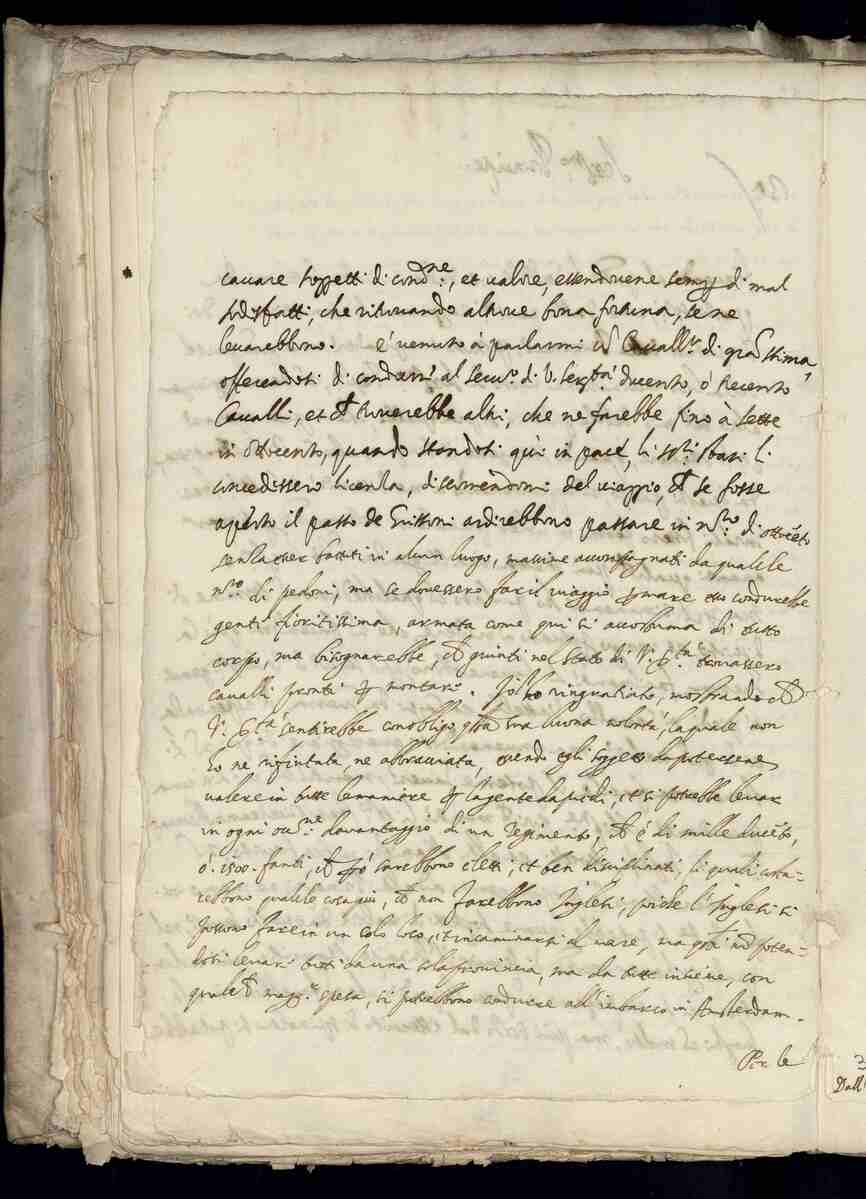 cauare soggetti di cond:ne, et ualore, essendouene semp di mal
sodisfatti, che ritrouando altroue bona fortuna, se ne
leuarebbono. e' uenuto à parlarmi un Cauall.r di gra stima,
offerendosi di condurre al seru.o di V. Ser.tà ducento, ò trecento
Caualli, et ch trouerebbe altri, che ne farebbe fino à sette
in ottocento, quando standosi quì in pace, li ss.ri Stati li
concedissero licenza, discorrendomi del uiaggio, ch se fosse
aperto il passo de Grissoni ardirebbono passare in n.ro di ottocéto
senza esser battuti in alcun luogo, massime accompagnati da qualche
n.ro di pedoni, ma se douessero far il uiaggio p mare esso condurebbe
gente fioritissima, armata come qui si accostuma di tutto
corpo, ma bisognarebbe, ch giunti nel stato di V. S.tà trouassero
caualli pronti p montare. Io l'ho ringratiato, mostrando ch
V. S.tà sentirebbe con obligo qsta sua buona uolontà, la quale non
ho ne rifiutata, ne abbracciata, essendo egli soggetto da potersene
ualere in tutte le maniere p la gente da piedi, et si potrebbe leuar
in ogni occ.ne d'auantaggio di un regimento, ch è di mille ducéto,
ò 1500. fanti, ch pò sarebbono eletti, et ben disciplinati, li quali costa-
rebbono qualche cosa più, ch non farebbono Inglesi, poiche l'Inglesi si
possono fare in un solo loco, et incaminarsi al mare, ma qsti nò poten-
dosi leuare tutti da una sola prouincia, ma da tutte insieme, con
qualch magg.r spesa, si potrebbono condurre all'imbarco in Amsterdam.
Per le
3
Dall